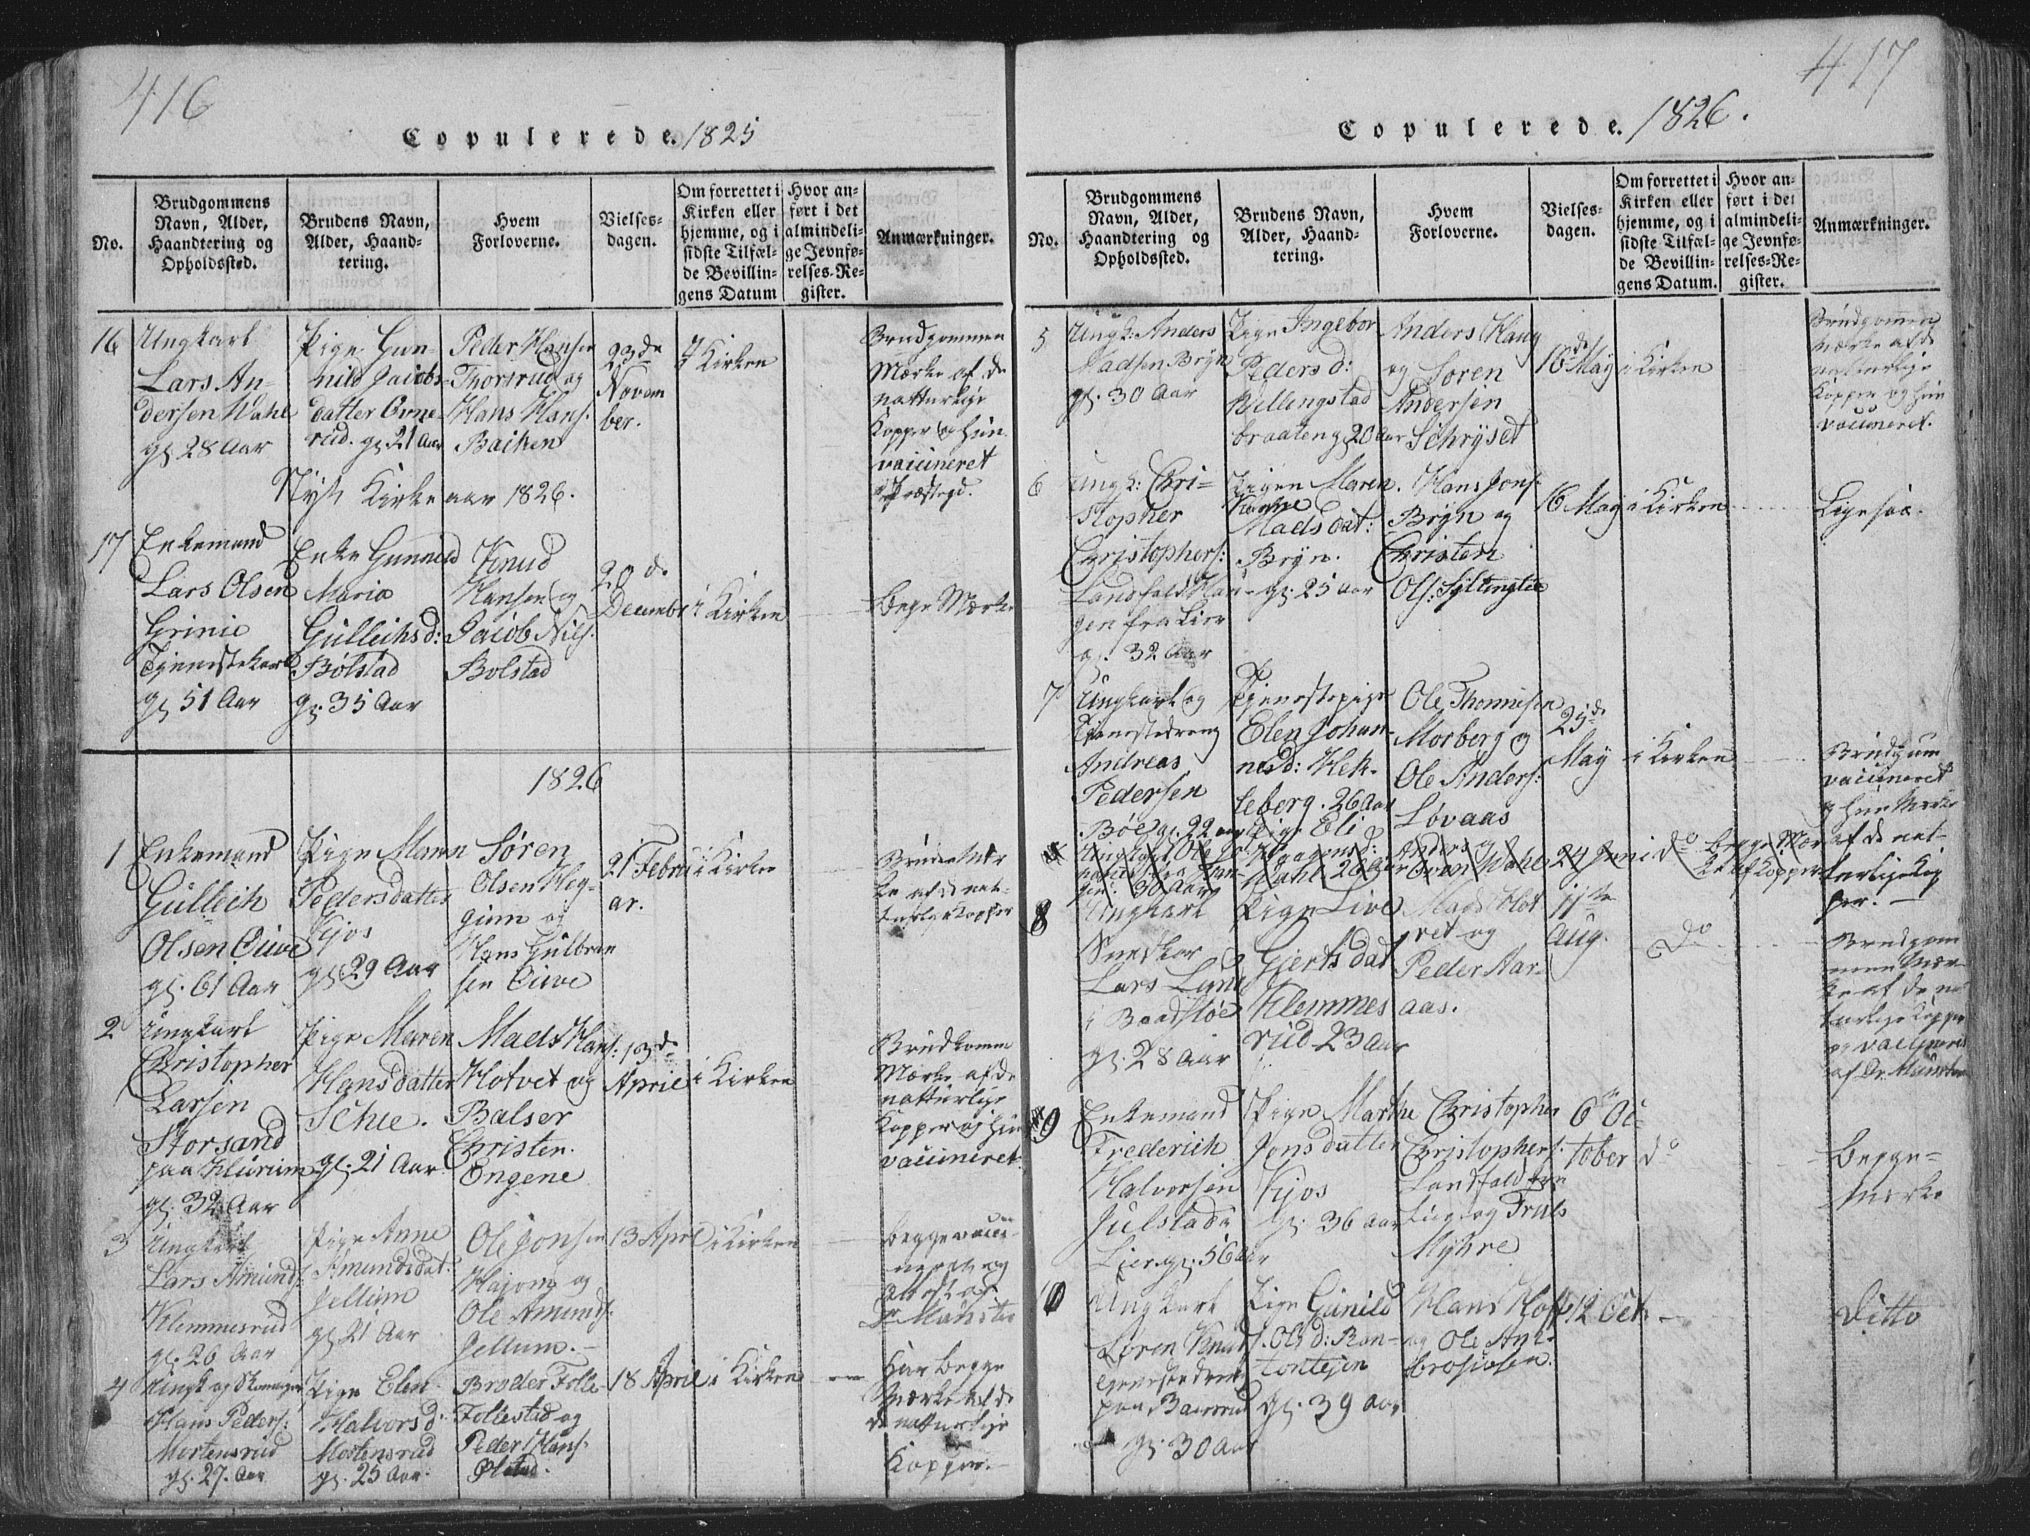 416
Copulerede. 1825
No.
Brudgommens
Navn, Alder,
Haandtering og
Opholdssted.
Brudens Navn,
Alder, Haand-
tering.
Hvem
Forloverne.
Vielses-
dagen.
Om forrettet i
Kirken eller
hjemme, og i
sidste Tilfæl-
de Bevillin-
gens Datum
Hvor an-
ført i det
almindeli-
ge Jevnfø-
relses-Re-
gister.
Anmærkninger.
16
Ungkarl
Lars An-
dersen Wahl
gl. 28 Aar
Pige Gun-
nild Jacobs-
datter Ovne-
rud. gl. 21 Aar
Peder Hansen
Thorsrud og
Hans Hans.
Backen
23de
Novem
ber.
i Kirken
Brudgommen
Mærke af de
natturlige
Kopper og hun
vaccineret
Nyt Kirkeaar 1826.
17
Enkemand
Lars Olsen
Grinie
Tjenestekarl
gl. 51 Aar
Enke Gunnild
Maria
Gullichsd:
Bølstad
gl. 35 Aar
Knud
Hansen og
Jacob Niels.
Bolstad
28de
Decembr
i Kirken
Bege Mærke
1826
1
Enkemand
Gullich
Olsen Cuve
gl. 61 Aar
Pige Maren
Pedersdatter
Kjos
gl. 29 Aar
Søren
Olsen Heg-
ginn og
Hans Gulbran
sen Cuve
21 Febru
ar.
i Kirken
ke af de nat-
turlige Kopper
2
Ungkarl
Christopher
Larsen
Storsand
paa Hurum
gl. 32 Aar
Pige Maren
Hansdatter
Schie.
gl. 21 Aar
Mads Hans:
Hotvet og
Balser
Christen.
Engene
13de
April
i Kirken
Brudkomme
Mærke af de
natturlige
Kopper og hun
vaccineret.
3
Ungkarl
Lars Amunds:
Klemmesrud
gl. 26 Aar
Pige Anne
Amundsdat:
Jellum
gl. 21 Aar
Ole Jonsen
Hajong og
Ole Amunds.
Jellum.
13 April
i Kirken
begge vacci-
neret og
Attest af
Dr Münster
4
Ungk og Skomager
Hans Peders:
Mortensrud
gl. 27. Aar
Pige Elen
Halvorsd.
Mortensrud
gl. 25 Aar.
Broder Folle-
Follestad og
Peder Hans.
Ølstad.
18 April
i Kirken
Har begge
Mærke af de
natturlige
Kopper.
417
Copulerede. 1826.
No.
Brudgommens
Navn, Alder,
Haandtering og
Opholdssted.
Brudens Navn,
Alder, Haand-
tering.
Hvem
Forloverne.
Vielses-
dagen.
Om forrettet i
Kirken eller
hjemme, og i
sidste Tilfæl-
de Bevillin-
gens Datum.
Hvor an-
ført i det
almindeli-
ge Jevnfø-
relses-Re-
gister.
Anmærkninger.
5
Ungk: Anders
Madsen Bryn
gl. 30 Aar
Pige Ingebor
Pedersd:
Billingstad
braaten gl 20 Aar
Anders Haug
og Søren
Andersen
Schryset
16de May
i Kirken
Brudgommen
Mærke af de
natturlige
Kopper og hun
vaccineret.
6
Ungk: Chri-
stopher
Christophers:
Landfald Hau-
gen fra Lier
gl. 32 Aar
Pigen Maren
Kirstine
Madsdat:
Bryn.
gl. 25 aar
Hans Jons.
Bryn og
Christen
Ols: Syltingtie
16 May
i Kirken
Ligesaa.
7
Ungkarl og
Tjenestedreng
Andreas
Pedersen
Bøe gl. 22 aar
Tjenestepige
Elen Johan-
nesd: Hek-
leberg. 26 Aar
Ole Thommesen
Morberg og
Ole Anders:
Løvaas
25de
May
i Kirken
Brudgum
vaccineret
og hun Mærke
af de nat-
turlige Kop
per.
Ungkarl Ole
30 Aar
Pige Eli
Haagensd:
Wahl 26 aar
Anders og
Even Wahl
24 Juni
do
begge Mær
ke af Kopper
8
Ungkarl
Snedker
Lars Lund
i Baadstøe
gl. 28 Aar
Pige Live
Gjertsdat
Klemmes
rud 23 Aar
Mads Hot
vet og
Peder Aar-
aas.
11te
Aug.
do
Brudgom
men Mær
ke af de na
turlige Kopper
og vaccineret
af Dr. Münster
9
Enkemand
Frederich
Halvorsen
Julstad i
Lier gl. 56 Aar
Pige Marthe
Jonsdatter
Kjos
gl. 36 aar
Christopher
Christophers.
Landfald fra
Lier og Truls
Myhre
6te Oc-
tober
do
begge
Mærke
10
Ungkarl
Søren Knuts.
Tjenestedreng
paa Bærrud
gl. 30 Aar
Pige Gunild
Ols d: Ron-
tontejen
gl. 39 aar
Hans Hoff
og Ole Am-
brosiusen.
12 Oct.
Ditto